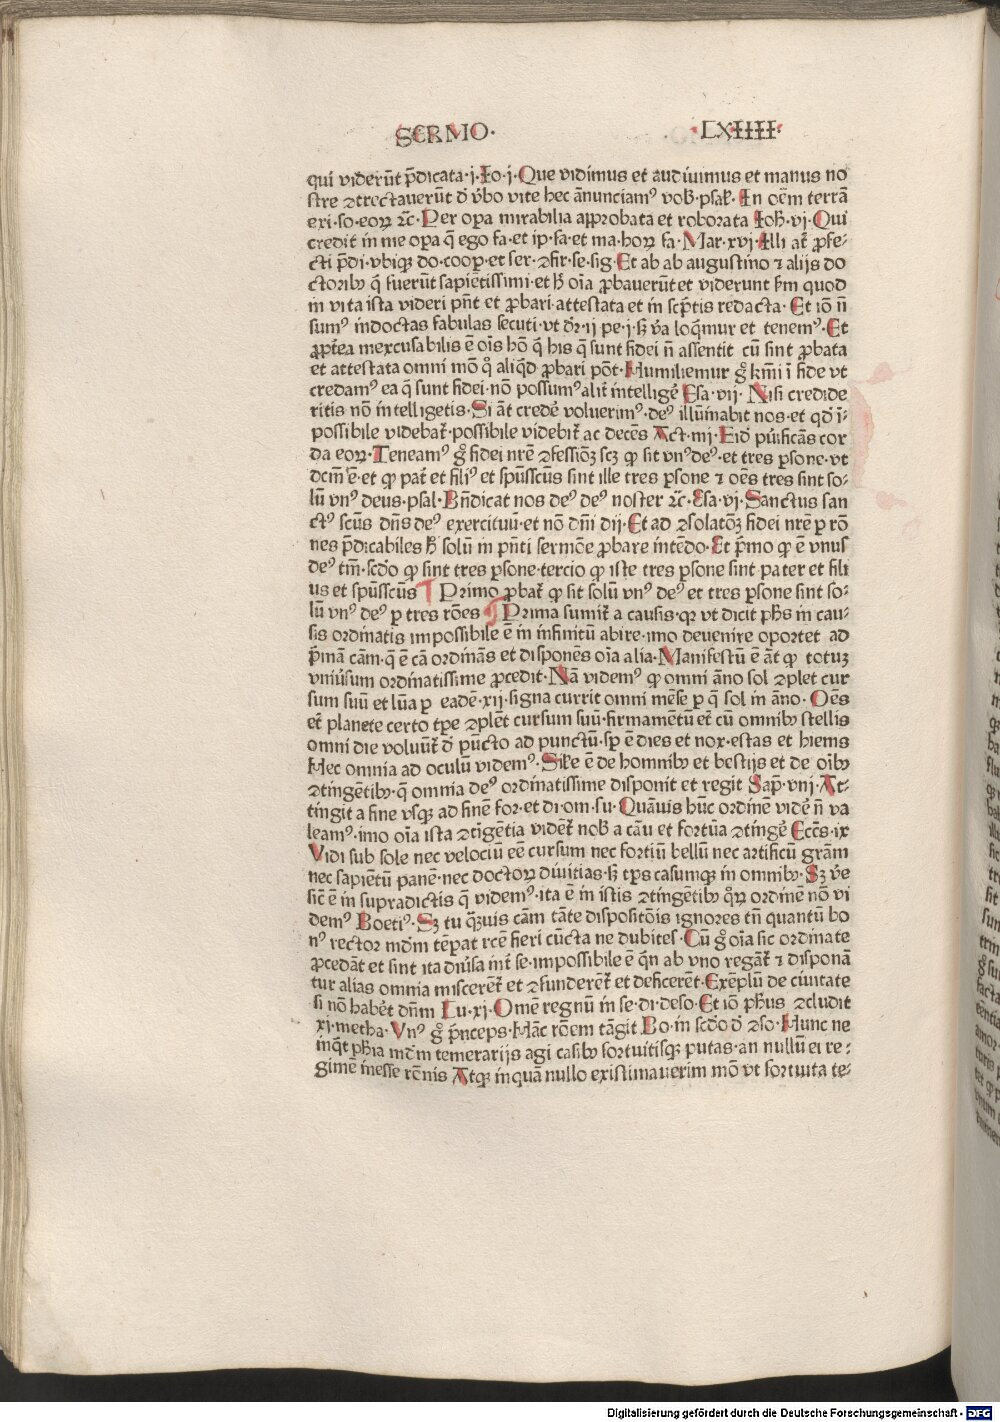 SERMO· ·LXIIII·
qui viderūt p̄dicata·j·Io·j·Que vidimus et audiuimus et manus no
stre ꝯtrectauerūt d̄ v̄bo vite hec ānunciamꝰ vob̄·psal̄·In oēm terrā
exi·so·eoꝝ ⁊c̄·Per opa mirabilia approbata et roborata Ioh̄·vj·Qui
credit in me opa q̄ ego fa·et ip·fa·et ma·hoꝝ fa·Mar·xvj·Illi at̄ ꝓfe-
cti p̄di·vbiqꝫ do·coop·et ser·ꝯfir·se·sig·Et ab ab augustino ⁊ alijs do
ctoribꝰ q̄ fuerūt sapiētissimi·et h̄ oīa ꝓbauerūt et viderunt ẜm quod
in vita ista videri pn̄t et ꝓbari·attestata et in sc̄ptis redacta·Et iō n̄
sumꝰ indoctas fabulas secuti·vt dr̄·ij pe·j·sꝫ v̄a loq̄mur et tenemꝰ·Et
ꝓpt̄ea inexcusabilis ē oīs hō q̄ his q̄ sunt fidei n̄ assentit cū sint ꝓbata
et attestata omni mō qͦ aliq̄d ꝓbari pōt·Humiliemur gͦ km̄i ī fide vt
credamꝰ ea q̄ sunt fidei·nō possumꝰ alit̄ intellige̅ Esa·vij·Nisi credide
ritis nō intelligetis·Si āt crede̅ voluerimꝰ·deꝰ illūinabit nos·et qd̄ ī-
possibile videbat̄·possibile videbit̄ ac decēs Act·xv·Fid̄ purificās cor
da eoꝝ·Teneamꝰ gͦ fidei nrē ꝯfessiōꝫ scꝫ ꝙ sit vnꝰ deꝰ·et tres ꝑsone·vt
dcm̄ ē·et ꝙ pat̄ et filiꝰ et spūsscūs sint ille tres ꝑsone ⁊ oēs tres sint so-
lū vnꝰ deus·psal·Bn̄dicat nos deꝰ deꝰ noster ⁊c̄·Esa·vj·Sanctus san
ctꝰ scūs dn̄s deꝰ exercituū·et nō dn̄i dij·Et ad ꝯsolatōꝫ fidei nrē ꝑ rō
nes p̄dicabiles h̄ solū in pn̄ti sermōe ꝓbare intēdo·Et p̄mo ꝙ ē vnus
deꝰ tm̄·scdo ꝙ sint tres ꝑsone·tercio ꝙ iste tres ꝑsone sint pater et fili
us et spūsscūs ¶ Primo ꝓbat̄ ꝙ sit solū vnꝰ deꝰ et tres ꝑsone sint so-
lū vnꝰ deꝰ ꝑ tres rōes ¶ Prima sumit̄ a causis·qꝛ vt dicit ph̄s in cau-
sis ordinatis impossibile ē in infinitū abire·imo deuenire oportet ad
p̄mā cām·q̄ ē cā ordinās et disponēs oīa alia·Manifestū ē āt ꝙ totuꝫ
vniūsum ordinatissime ꝓcedit·Nā videmꝰ ꝙ omni āno sol ꝯplet cur
sum suū et lūa ꝑ eadē·xij·signa currit omni mēse ꝑ q̄ sol in āno·Oēs
et̄ planete certo tp̄e ꝯplēt cursum suū·firmamētū et̄ cū omnibꝰ stellis
omni die voluūt̄ d̄ pūcto ad punctū·sp̄ ē dies et nox·estas et hiems
Hec omnia ad oculū videmꝰ·Sil̄e ē de hominibꝰ et bestijs et de oībꝰ
ꝯtingētibꝰ·q̄ omnia deꝰ ordinatissime disponit et regit Sap̄·viij·At-
tingit a fine vsqꝫ ad finē for·et di·om·su·Quāuis hūc ordinē vide̅ n̄ va
leamꝰ·imo oīa ista ꝯtīgētia vidēt̄ nob̄ a cāu et fortūa ꝯtinge̅ Eccēs·ix
Vidi sub sole nec velociū eē cursum nec fortiū bellū nec artificū grām
nec sapiētū panē·nec doctoꝝ diuitias·sꝫ tp̄s casumqꝫ in omnibꝰ·Sꝫ v̄e
sic̄ ē in supradictis q̄ videmꝰ·ita ē in istis ꝯtingētibꝰ qͦꝝ ordinē nō vi
demꝰ Boetiꝰ·Sꝫ tu q̄ꝫuis cām tāte dispositōis ignores tn̄ quantū bo
nꝰ rector mūdm tēpat rcē fieri cūcta ne dubites·Cū gͦ oīa sic ordinate
ꝓcedāt et sint ita diūsa int̄ se·impossibile ē qͥn ab vno regāt̄ ⁊ disponā
tur alias omnia misceret̄ et ꝯfunderēt̄ et deficerēt·Exēplū de ciuitate
si nō habēt dn̄m Lu·xj·Omē regnū in se·di·deso·Et iō ph̄us ꝯcludit
xj·metha·Vnꝰ gͦ p̄nceps·Hāc rōem tāgit Bo·in scdō d̄ ꝯso·Hunc ne
inq̄t ph̄ia mūdm temerarijs agi casibꝰ fortuitisqꝫ putas·an nullū ei re-
gimē inesse rōnis Atqꝫ inquā nullo existimauerim mō vt fortuita te-
Digitalisierung gefördert durch die Deutsche Forschungsgemeinschaft - DFG